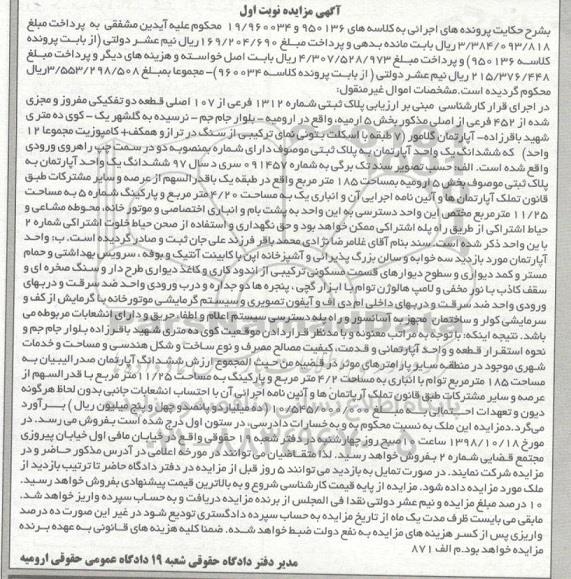 آگهی مزایده نوبت اول
بشرح حکایت پرونده های اجرائی به کلاسه های ۹۵۰۱۳۶ و ۱۹/۹۶۰۰۳۴ محکوم علیه آیدین مشفقی به پرداخت مبلغ
۳/۳۸۴/۰۹۳/۸۱۸ ریال بابت مانده بدهی و پرداخت مبلغ ۱۶۹/۲۰۴/۶۹۰ ریال نیم عشر دولتی (از بابت پرونده
کلاسه ۹۵۰۱۳۶) و پرداخت مبلغ ۴/۳۰۷/۵۲۸/۹۷۳ ریال بابت اصل خواسته و هزینه های دیگر و پرداخت مبلغ
۲۱۵/۳۷۶/۴۴۸ ریال نیم عشر دولتی (از بابت پرونده کلاسه ۹۶۰۰۳۴)- مجموعا بمبلغ ۳/۵۵۳/۲۹۸/۵۰۸ ریال
محکوم گردیده است.مشخصات اموال غیر منقول:
در اجرای قرار کارشناسی مبنی بر ارزیابی پلاک ثبتی شماره ۱۳۱۲ فرعی از ۱۰۷ اصلی قطعه دو تفکیکی مفروز و مجزی
شده از ۴۵۲ فرعی از اصلی مذکور بخش ۵ ارمیه، واقع در ارومیه - بلوار جام جم - نرسیده به گلشهر یک - کوی ده متری
شهید باقرزاده- آپارتمان گلامور (۷ طبقه با اسکلت بتونی نمای ترکیبی از سنگ در تراز و همکف+ کامپوزیت مجموعا ۱۲
واحد) که ششدانگ یک واحد آپارتمان به پلاک ثبتی موصوف دارای شماره بمنصوبه دو در سمت چپ راهروی ورودی
واقع شده است. الف: حسب تصویر سند تک برگی به شماره ۰۹۱۴۵۷ سری د سال ۹۷ ششدانگ یک واحد آپارتمان به
پلاک ثبتی موصوف بخش ۵ ارومیه بمساحت ۱۸۵ متر مربع واقع در طبقه یک باقدر السهم از عرصه و سایر مشترکات طبق
قانون تملک آپارتمان ها و آئین نامه اجرایی آن و انباری یک به مساحت ۴/۲۰ متر مربع و پارکینگ شماره ۵ به مساحت
۱۱/۲۵ متر مربع مختص این واحد دسترسی به این واحد به پشت بام و انباری اختصاصی و موتور خانه، محوطه مشاعی و
حیاط اشتراکی از طریق راه پله اشتراکی ممکن خواهد بود و حق نگهداری و استفاده از صحن حیاط خلوت اشتراکی شماره ۲
با این واحد ذکر شده است. سند بنام آقای غلامرضا نژادی محمد باقر فرزند علی جان ثبت و صادر گردیده است. ب: واحد
آپارتمان مورد بازدید سه خوابه و سالن بزرگ پذیرائی و آشپزخانه اپن با کابینت آنتیک و بوفه ، سرویس بهداشتی و حمام
مستر و کمد دیواری و سطوح دیوارهای قسمت مسکونی ترکیبی از اندود کاری و کاغذ دیواری طرح دار و سنگ صخره ای و
سقف کاذب با نور مخفی و لامپ هالوژن توام با ابزار گچی ، پنجره ها دو جداره و درب ورودی واحد ضد سرقت و دربهای
ورودی واحد ضد سرقت و دربهای داخلی ام دی اف و آیفون تصویری و سیستم گرمایشی موتور خانه با گرمایش از کف و
سرمایشی کولر و ساختمان مجهز به آسانسور و راه پله دسترسی سیستم اعلام و اطفا حریق و دارای انشعابات مربوطه می
باشد. نتیجه اینکه: با توجه به مراتب معنونه و با مدنظر قرار دادن موقعیت کوی ده متری شهید باقرزاده بلوار جام جم و
نحوه استقرار قطعه و واحد آپارتمانی و قدمت، کیفیت مصالح مصرف و نوع ساخت و شکل هندسی و مساحت و خدمات
شهری موجود در منطقه سایر پارامترهای موثر در قضیه من حیث المجموع ارزش ششدانگ آپارتمان صدرالبیان به
مساحت ۱۸۵ مترمربع توام با انباری به مساحت ۴/۲ متر مربع و پارکینگ به مساحت ۱۱/۲۵ متر مربع با قدرالسهم از
عرصه و سایر مشترکات طبق قانون تملک آپارتمان ها و آئین نامه اجرایی آن با احتساب انشعابات جانبی بدون لحاظ هرگونه
دیون و تعهدات احتمالی بـه مبلغ ۱۰/۵۴۵/۰۰۰/۰۰۰ (ده میلیارد و پانصد و چهل و پنج میلیون ریال) بـرآورد
می گردد.دمزایده این ملک به نسبت محکوم به و به خسارات دادرسی در ستون اول درج شده است بفروش می رسد. در
مورخ ۱۳۹۸/۱۰/۱۸ ساعت ۱۰ صبح روز چهارشنبه در دفتر شعبه ۱۹ حقوقی واقع در خیابان مافی اول خیابان پیروزی
مجتمع قضایی شماره ۲ بفروش خواهد رسید. لذا متقاضیان می توانند در مورخه اعلامی در آدرس مذکور حاضر و در
مزایده شرکت نمایند. در صورت تمایل به بازدید می توانند ۵ روز قبل از مزایده در دفتر دادگاه حاضر تا ترتیب بازدید از
ملک مورد مزایده داده شود. مزایده از پایه قیمت کارشناسی شروع و به بالاترین قیمت پیشنهادی بفروش خواهد رسید.
۱۰ درصد مبلغ مزایده و نیم عشر دولتی نقدا فی المجلس از برنده مزایده دریافت و به حساب سپرده واریز خواهد شد.
مابقی می بایست ظرف مدت یک ماه از تاریخ مزایده به حساب سپرده دادگستری تودیع شود در غیر این صورت ده درصد
واریزی پس از کسر هزینه های مزایده به نفع دولت ضبط خواهد شد. ضمنا کلیه هزینه های قانونی به عهده برنده
مزایده خواهد بود.م الف ۸۷۱
مدیر دفتر دادگاه حقوقی شعبه ۱۹ دادگاه عمومی حقوقی ارومیه